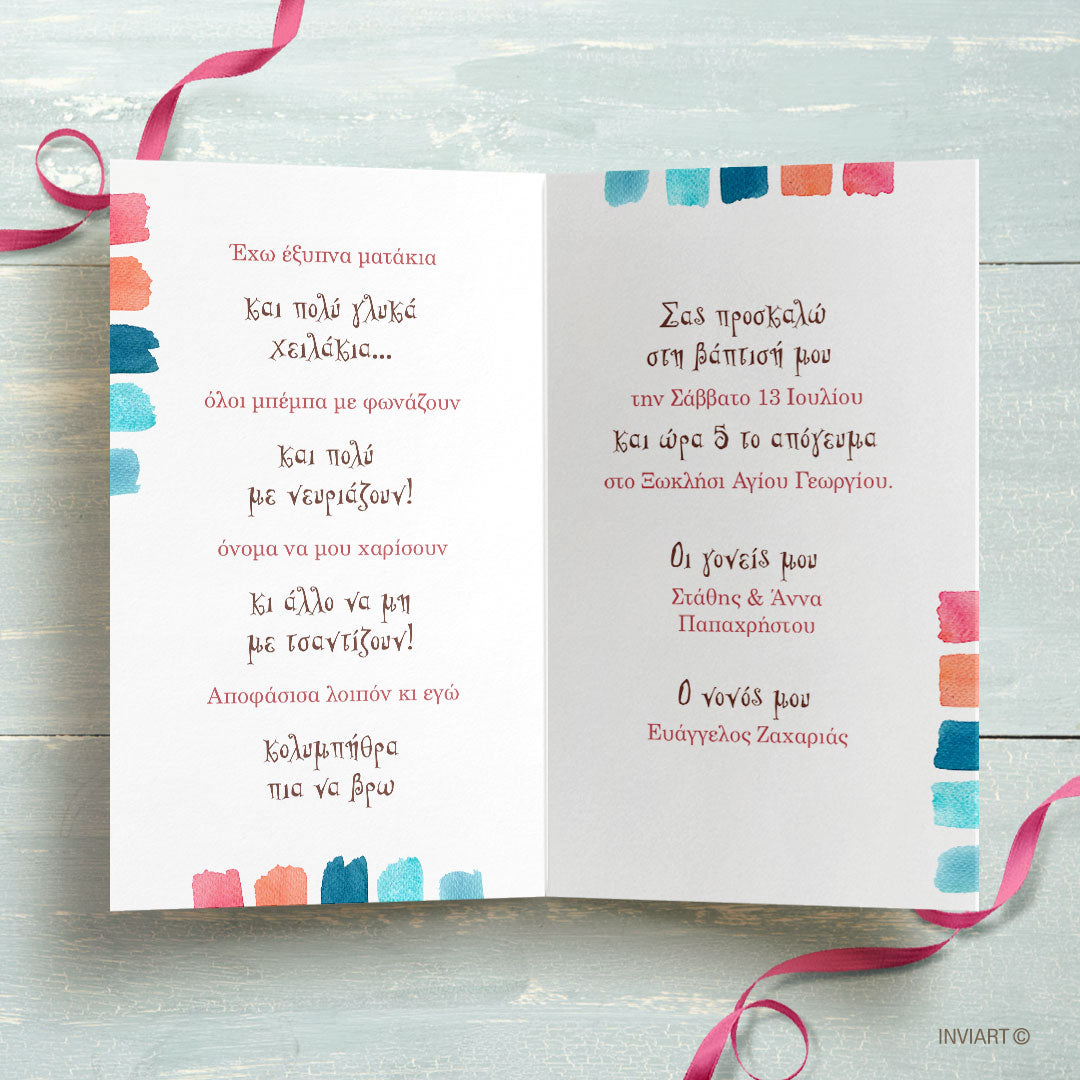 Έχω έξυπνα ματάκια
και πολύ γλυκά
χειλάκια...
όλοι μπέμπα με φωνάζουν
και πολύ
με νευριάζουν!
όνομα να μου χαρίσουν
κι άλλο να μη
με τσαντίζουν!
Αποφάσισα λοιπόν κι εγώ
κολυμπήθρα
πια να βρω
Σας προσκαλώ
στη βάπτισή μου
την Σάββατο 13 Ιουλίου
και ώρα 5 το απόγευμα
στο Ξωκλήσι Αγίου Γεωργίου.
Οι γονείς μου
Στάθης & Άννα
Παπαχρήστου
Ο νονός μου
Ευάγγελος Ζαχαριάς
INVIART ©